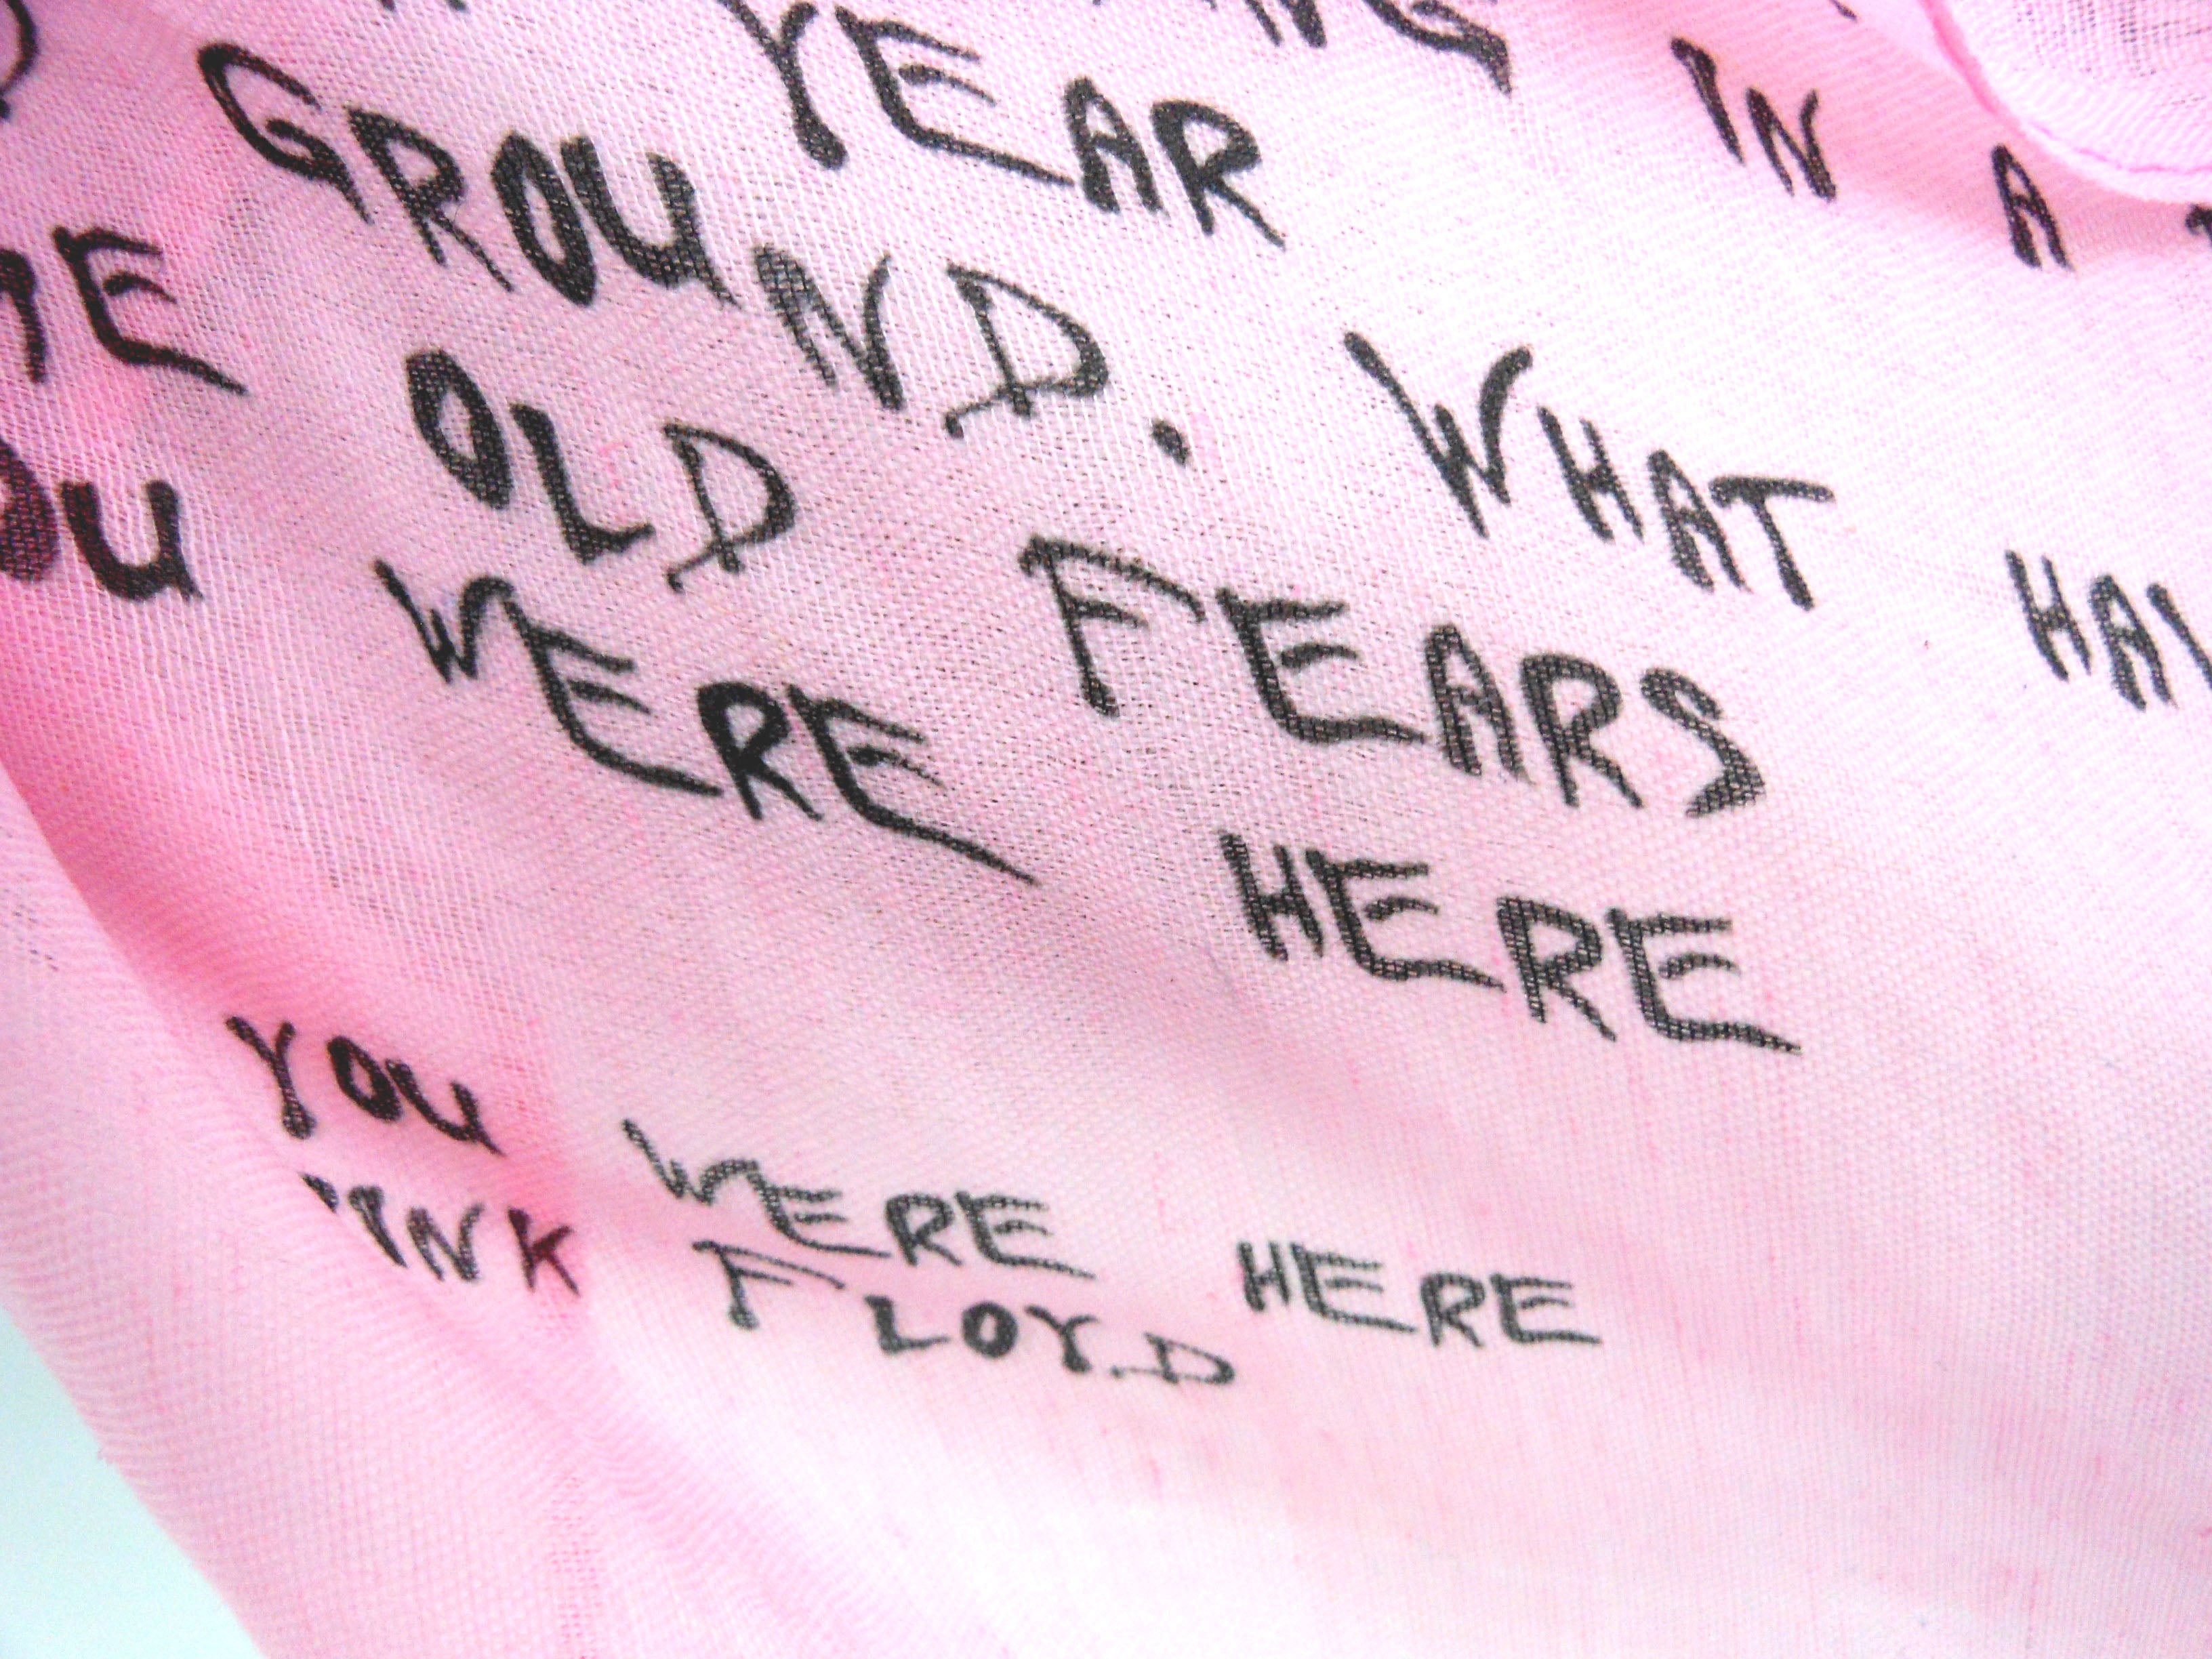 YEAR
IN A
GROUND. WHAT
OLD FEARS
WERE HERE
YOU WERE HERE
FLOYD